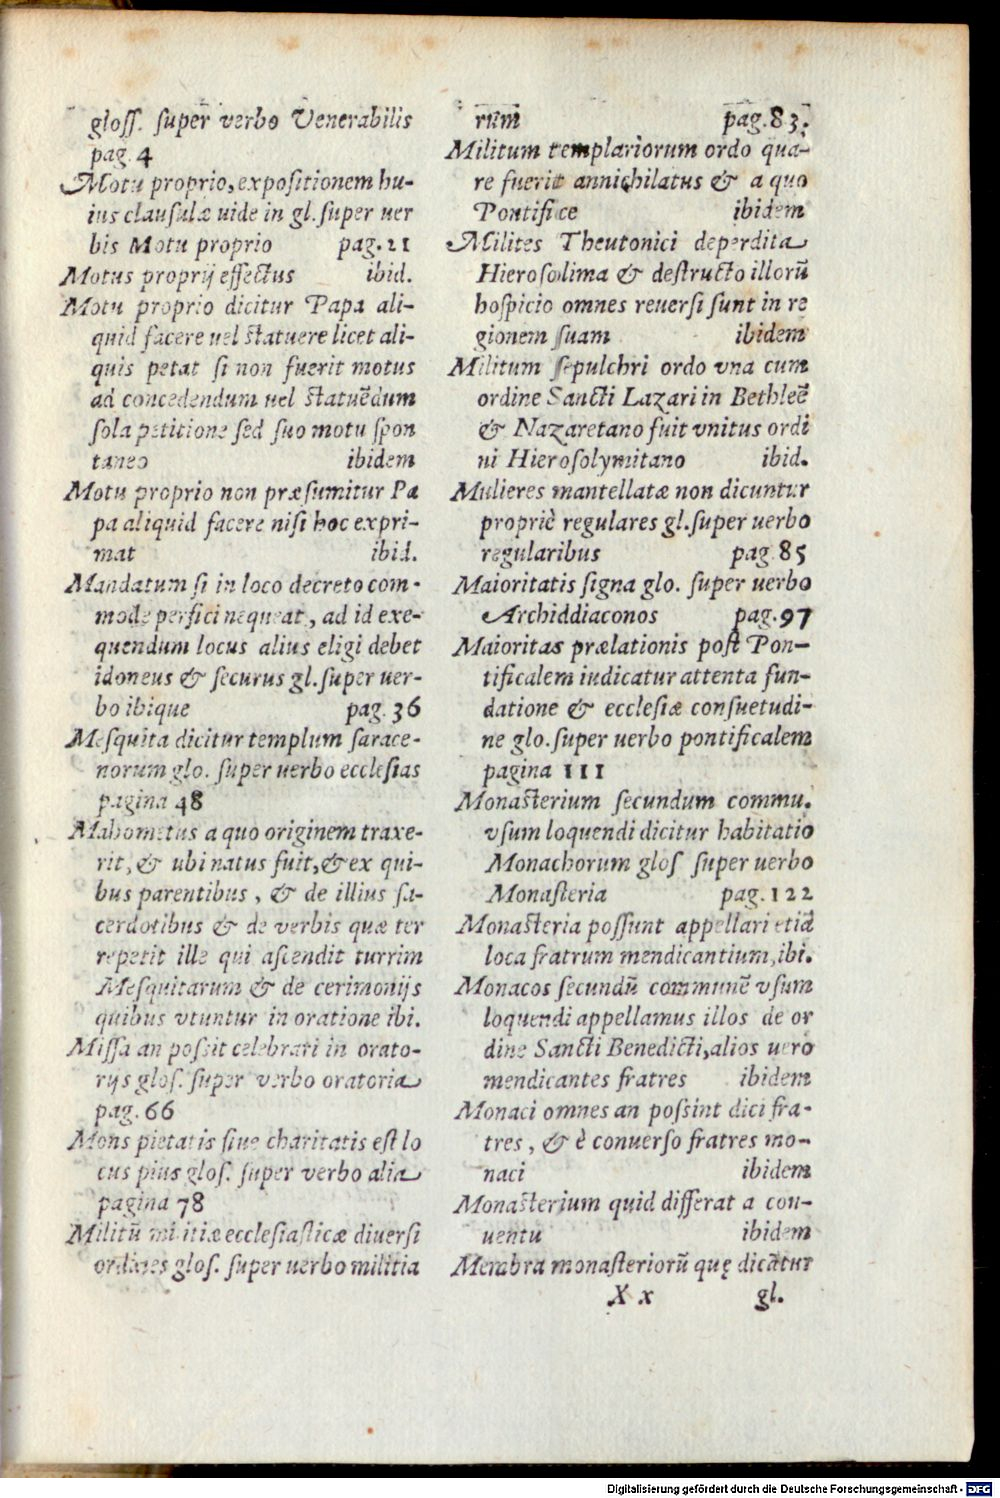 gloss. super verbo Venerabilis
pag. 4
Motu proprio, expositionem hu-
ius clausulæ uide in gl. super uer
bis Motu proprio pag. 21
Motus proprij effectus ibid.
Motu proprio dicitur Papa ali-
quid facere uel statuere licet ali-
quis petat si non fuerit motus
ad concedendum uel statuēdum
sola petitione sed suo motu spon
taneo ibidem
Motu proprio non præsumitur Pa
pa aliquid facere nisi hoc expri-
mat ibid.
Mandatum si in loco decreto com-
mode perfici nequeat, ad id exe-
quendum locus alius eligi debet
idoneus & securus gl. super uer-
bo ibique pag. 36
Mesquita dicitur templum sarace-
norum glo. super uerbo ecclesias
pagina 48
Mahometus a quo originem traxe-
rit, & ubi natus fuit, & ex qui-
bus parentibus, & de illius sa-
cerdotibus & de verbis quæ ter
repetit ille qui ascendit turrim
Mesquitarum & de cerimonijs
quibus vtuntur in oratione ibi.
Missa an possit celebrari in orato-
rijs glos. super verbo oratoria
pag. 66
Mons pietatis siue charitatis est lo
cus pius glos. super verbo alia
pagina 78
Militū militiæ ecclesiasticæ diuersi
ordines glos. super uerbo militia
rum pag. 83.
Militum templariorum ordo qua-
re fuerit annichilatus & a quo
Pontifice ibidem
Milites Theutonici deperdita
Hierosolima & destructo illorū
hospicio omnes reuersi sunt in re
gionem suam ibidem
Militum sepulchri ordo vna cum
ordine Sancti Lazari in Bethleē
& Nazaretano fuit vnitus ordi
ni Hierosolymitano ibid.
Mulieres mantellatæ non dicuntur
propriè regulares gl. super uerbo
regularibus pag. 85
Maioritatis signa glo. super uerbo
Archiddiaconos pag. 97
Maioritas prælationis post Pon-
tificalem iudicatur attenta fun-
datione & ecclesiæ consuetudi-
ne glo. super uerbo pontificalem
pagina 111
Monasterium secundum commu.
vsum loquendi dicitur habitatio
Monachorum glos super uerbo
Monasteria pag. 122
Monasteria possunt appellari etiā
loca fratrum mendicantium, ibi.
Monacos secundū communē vsum
loquendi appellamus illos de or
dine Sancti Benedicti, alios uero
mendicantes fratres ibidem
Monaci omnes an possint dici fra-
tres, & è conuerso fratres mo-
naci ibidem
Monasterium quid differat a con-
uentu ibidem
Membra monasteriorū quę dicātur
X x gl.
Digitalisierung gefördert durch die Deutsche Forschungsgemeinschaft - DFG